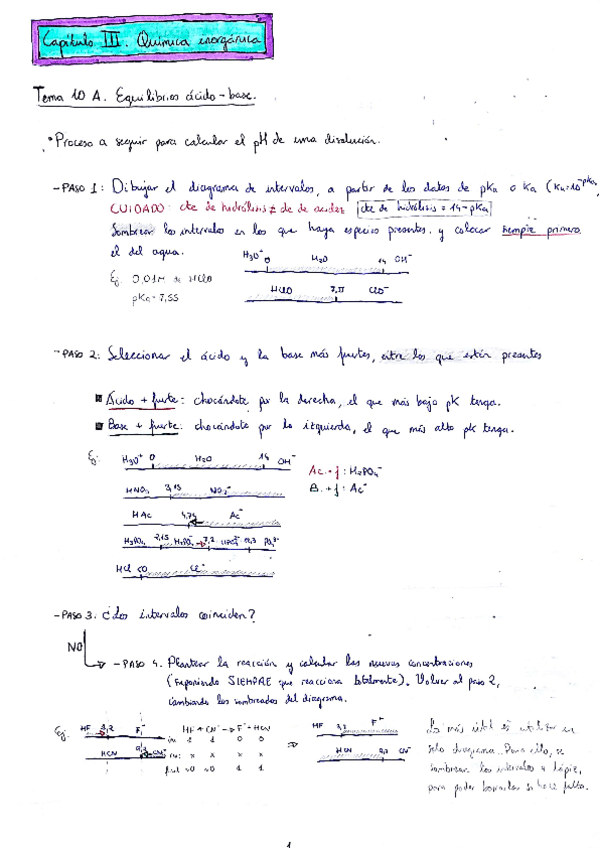 Capítulo III. Química inorgánica
Tema 10 A. Equilibrios ácido-base.
• Proceso a seguir para calcular el pH de una disolución.
- PASO 1: Dibujar el diagrama de intervalos, a partir de los datos de pKa o Ka (Ka=10^-pKa)
CUIDADO: cte de hidrólisis ≠ de de ácidos cte de hidrólisis = 14-pKa
Sombrear los intervalos en los que haya especies presentes. y colocar siempre primero
el del agua.
H₃O⁺ 0 H₂O 14 OH⁻
Ej: 0,01M de HClO
pKa = 7,55
HClO ClO⁻
- PASO 2: Seleccionar el ácido y la base más fuertes, entre los que están presentes
Ácido + fuerte: chocándote por la derecha, el que más bajo pK tenga.
Base + fuerte: chocándote por la izquierda, el que más alto pK tenga.
Ej:
H₃O⁺ 0 H₂O 14 OH⁻
Ac. + f: H₂PO₄⁻
B. + f: Ac⁻
HNO₂ 3,15 NO₂⁻
HAc Ac⁻
H₃PO₄ 2,15 H₂PO₄⁻ 7,2
HCl Cl⁻
- PASO 3. ¿Los intervalos coinciden?
NO
- PASO 4. Plantear la reacción y calcular las nuevas concentraciones
(suponiendo SIEMPRE que reacciona totalmente). Volver al paso 2,
cambiando los sombreados del diagrama.
Ej: HF 3,2 F⁻
HCN CN⁻
HF + CN⁻ → F⁻ + HCN
in: 1 1 0 0
rxc: x x x x
final ~0 ~0 1 1
⇒
HF 3,2 F⁻
HCN CN⁻
Lo más útil es utilizar un
solo diagrama. Para ello, se
sombrean los intervalos a lápiz,
para poder borrarlos si hace falta.
1